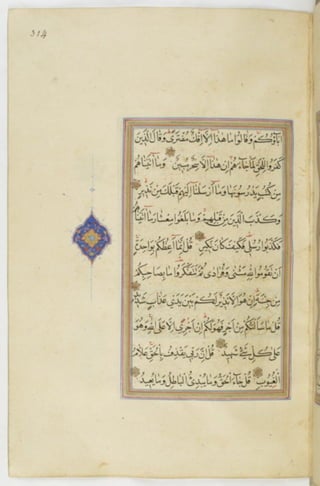 314
اٰبَاؤُكُمْ وَقَالُوا مَا هٰذَا اِلَّا اِفْكٌ مُفْتَرًى وَقَالَ الَّذِينَ
كَفَرُوا لِلْحَقِّ لَمَّا جَاءَهُمْ اِنْ هٰذَا اِلَّا سِحْرٌ مُبِينٌ وَمَا اٰتَيْنَاهُمْ
مِنْ كُتُبٍ يَدْرُسُونَهَا وَمَا اَرْسَلْنَا اِلَيْهِمْ قَبْلَكَ مِنْ نَذِيرٍ
وَكَذَّبَ الَّذِينَ مِنْ قَبْلِهِمْ وَمَا بَلَغُوا مِعْشَارَ مَا اٰتَيْنَاهُمْ
فَكَذَّبُوا رُسُلِي فَكَيْفَ كَانَ نَكِيرِ قُلْ اِنَّمَا اَعِظُكُمْ بِوَاحِدَةٍ
اَنْ تَقُومُوا لِلّٰهِ مَثْنٰى وَفُرَادٰى ثُمَّ تَتَفَكَّرُوا مَا بِصَاحِبِكُمْ
مِنْ جِنَّةٍ اِنْ هُوَ اِلَّا نَذِيرٌ لَكُمْ بَيْنَ يَدَيْ عَذَابٍ شَدِيدٍ
قُلْ مَا سَاَلْتُكُمْ مِنْ اَجْرٍ فَهُوَ لَكُمْ اِنْ اَجْرِيَ اِلَّا عَلَى اللّٰهِ وَهُوَ
عَلٰى كُلِّ شَيْءٍ شَهِيدٌ قُلْ اِنَّ رَبِّي يَقْذِفُ بِالْحَقِّ عَلَّامُ
الْغُيُوبِ قُلْ جَاءَ الْحَقُّ وَمَا يُبْدِئُ الْبَاطِلُ وَمَا يُعِيدُ